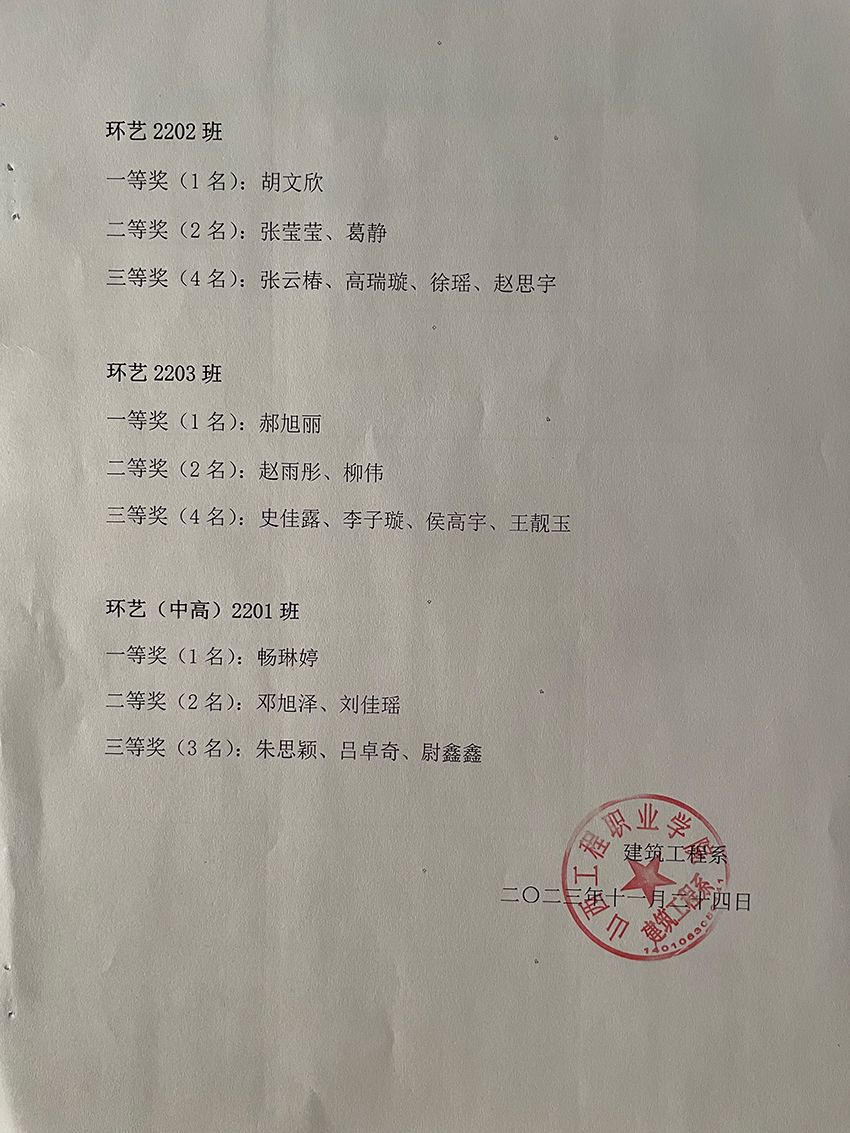 环艺2202班
一等奖（1名）：胡文欣
二等奖（2名）：张莹莹、葛静
三等奖（4名）：张云椿、高瑞璇、徐瑶、赵思宇
环艺2203班
一等奖（1名）：郝旭丽
二等奖（2名）：赵雨彤、柳伟
三等奖（4名）：史佳露、李子璇、侯高宇、王靓玉
环艺（中高）2201班
一等奖（1名）：畅琳婷
二等奖（2名）：邓旭泽、刘佳瑶
三等奖（3名）：朱思颖、吕卓奇、尉鑫鑫
建筑工程系
二〇二三年十一月二十四日
山西工程职业学院
建筑工程系